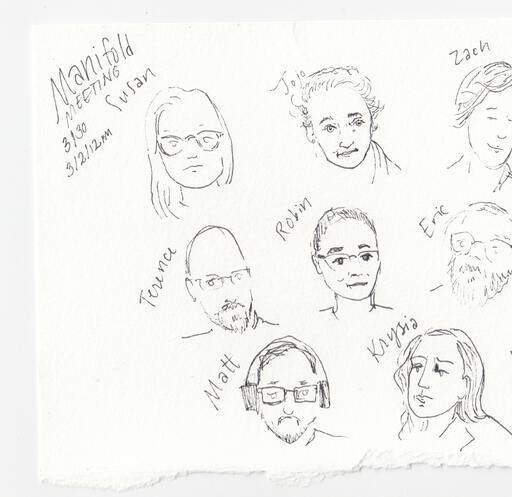 Manifold
MEETING
3/30
Susan
Jojo
Zach
Terence
Robin
Eric
Matt
Krysia